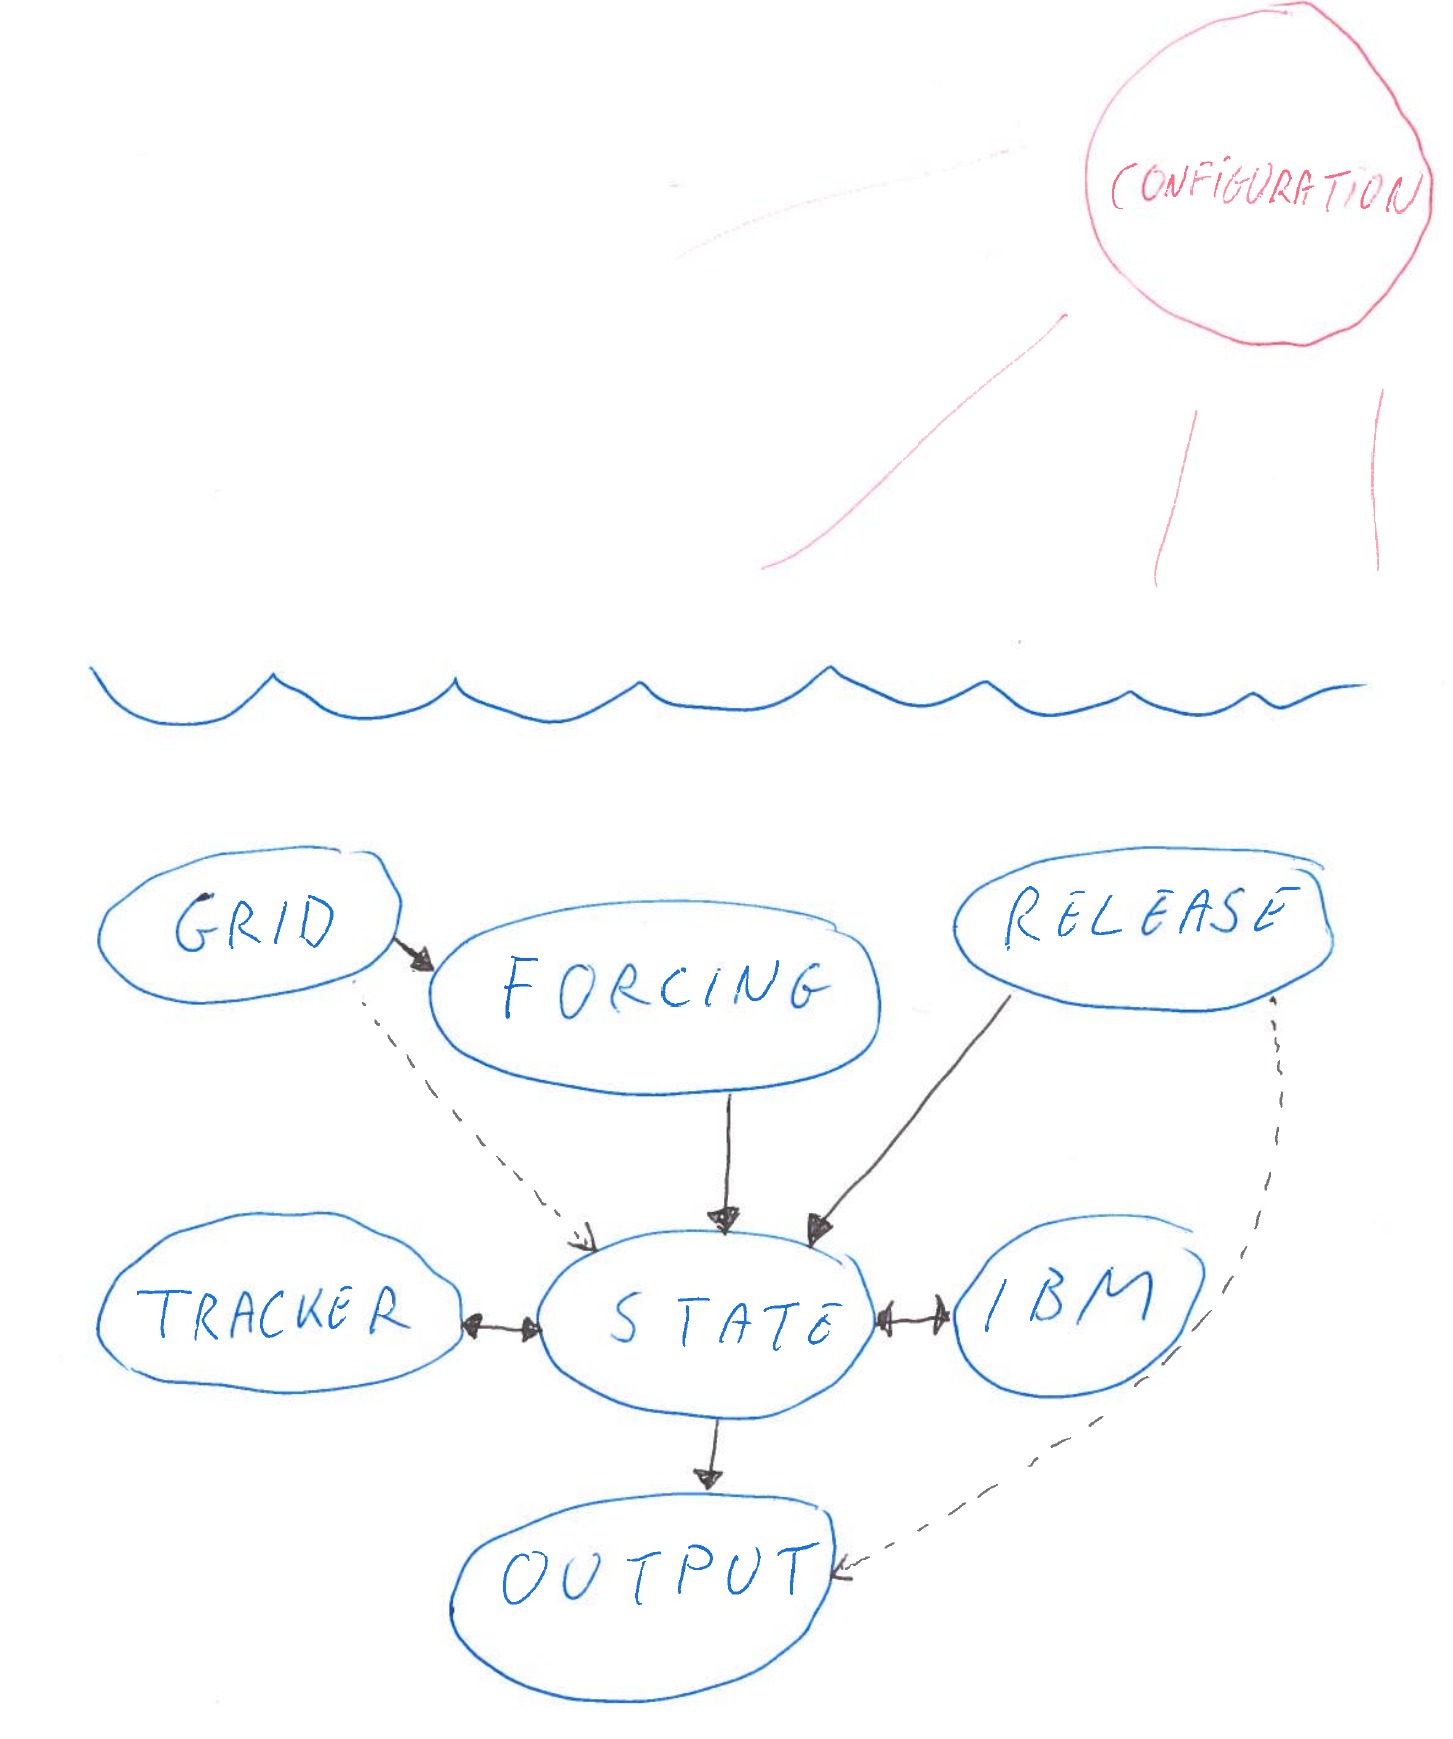 CONFIGURATION
GRID
FORCING
RELEASE
TRACKER
STATE
IBM
OUTPUT